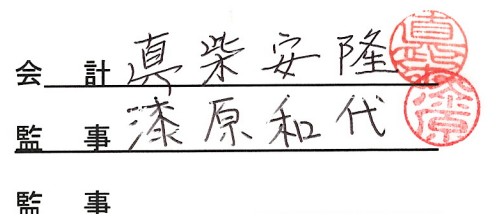 会計 真柴安隆 真柴
監事 漆原和代 漆原
監事